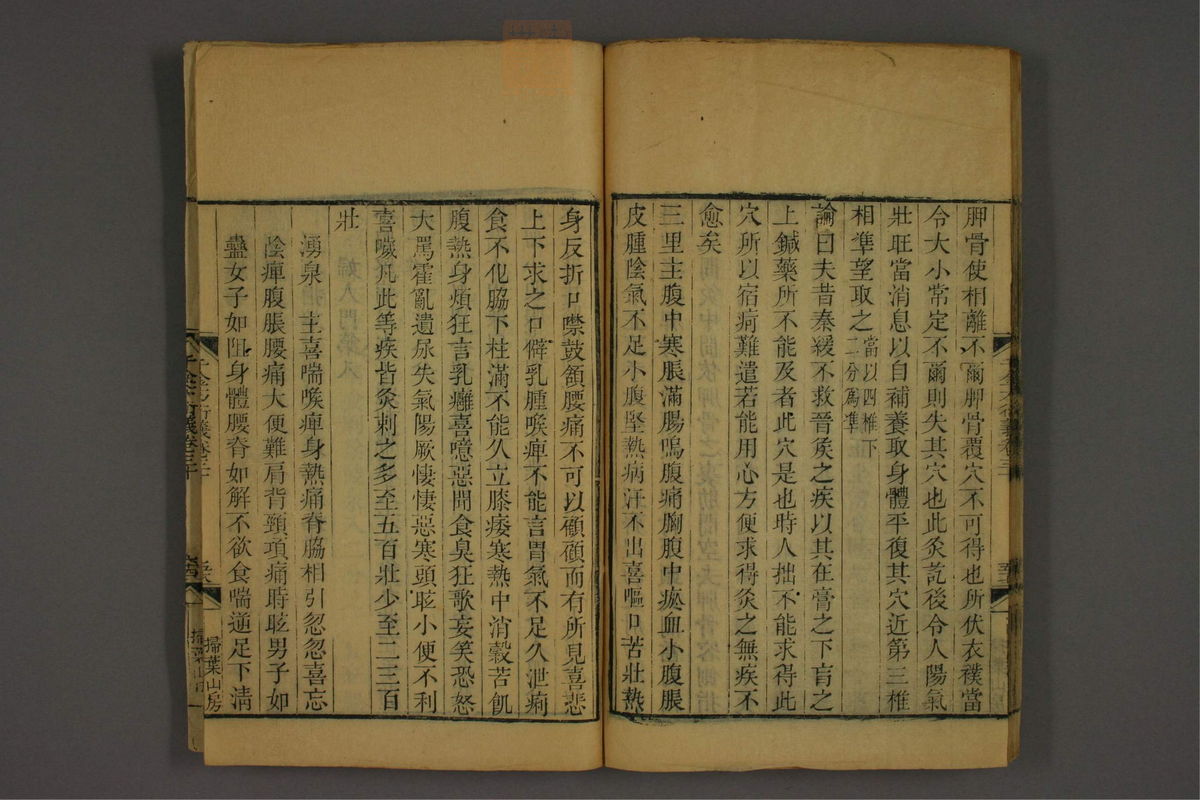 胛骨使相離不爾胛骨覆穴不可得也所伏衣襆當
令大小常定不爾則失其穴也此灸訖後令人陽氣
壯旺當消息以自補養取身體平復其穴近第三椎
相準望取之當以四椎下二分為準
論曰夫昔秦緩不救晉侯之疾以其在膏之下肓之
上鍼藥所不能及者此穴是也時人拙不能求得此
穴所以宿疴難遣若能用心方便求得灸之無疾不
愈矣
三里主腹中寒脹滿腸鳴腹痛胸腹中瘀血小腹脹
皮腫陰氣不足小腹堅熱病汗不出喜嘔口苦壯熱
身反折口噤鼓頷腰痛不可以顧顧而有所見喜悲
上下求之口僻乳腫喉痺不能言胃氣不足久泄痢
食不化脇下柱滿不能久立膝痿寒熱中消穀苦飢
腹熱身煩狂言乳癰喜噫惡聞食臭狂歌妄笑恐怒
大罵霍亂遺尿失氣陽厥悽悽惡寒頭眩小便不利
喜噦凡此等疾皆灸刺之多至五百壯少至二三百
壯
湧泉主喜喘喉痺身熱痛脊脇相引忽忽喜忘
陰痺腹脹腰痛大便難肩背頸項痛時眩男子如
蠱女子如阻身體腰脊如解不欲食喘逆足下清
千金方衍義卷三十
掃葉山房